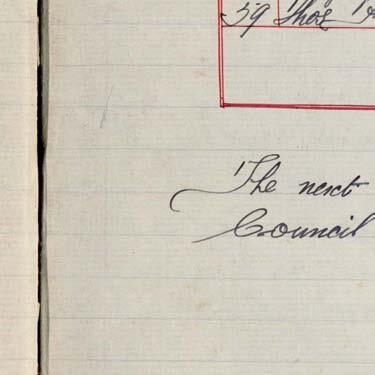 59 Thos
The next
Council